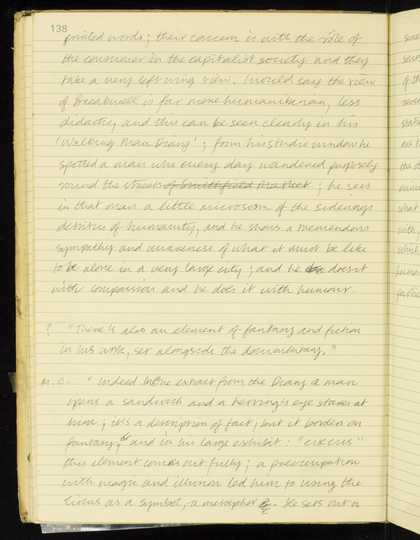 138
printed words; their concern is with the rôle of
the consumer in the capitalist society and they
take a very left wing view. I would say the view
of Breakwell is far more humanitarian, less
didactic, and this can be seen clearly in his
'Walking Man Diary'; from his studio window he
spotted a man who every day wandered purposely
round the streets of Smithfield Market; he sees
in that man a little microcosm of the
detritus of humanity, and he shows a tremendous
sympathy and awareness of what it must be like
to be alone in a very large city; and he does it
with compassion and he does it with humour.
"There is also an element of fantasy and fiction
in his work, set alongside the documentary."
"Indeed. In the extract from the Diary a man
opens a sandwich and a herring's eye stares at
him; it's a description of fact, but it borders on
fantasy; and in his large exhibit: "circus"
this element comes out fully; a preoccupation
with magic and illusion led him to using the
circus as a symbol, a metaphor. He sets out a